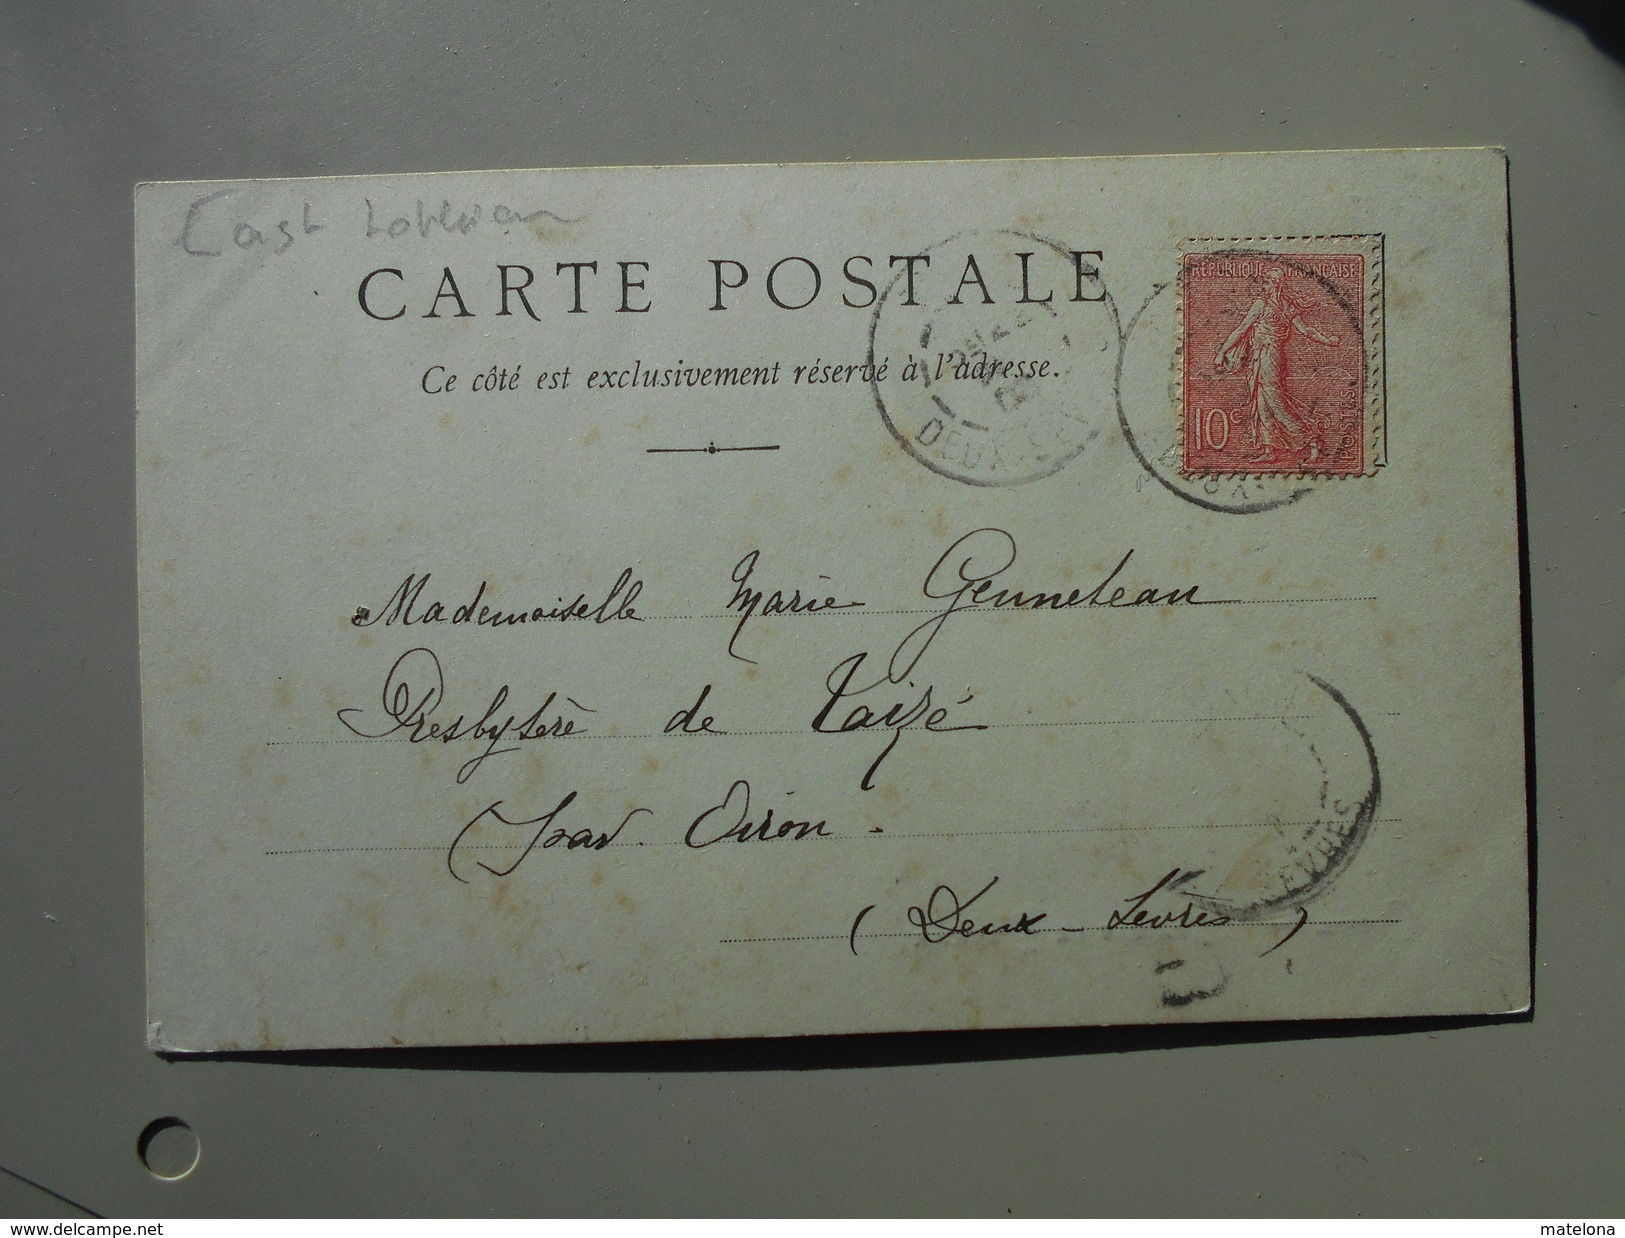 East Lothian
CARTE POSTALE
Ce côté est exclusivement réservé à l'adresse.
RÉPUBLIQUE FRANÇAISE
10c
POSTES
DEUX-SE
Mademoiselle Marie Genneteau
Presbytère de Taizé
par Oiron.
(Deux-Sèvres)
EVRES
www.delcampe.net
matelona